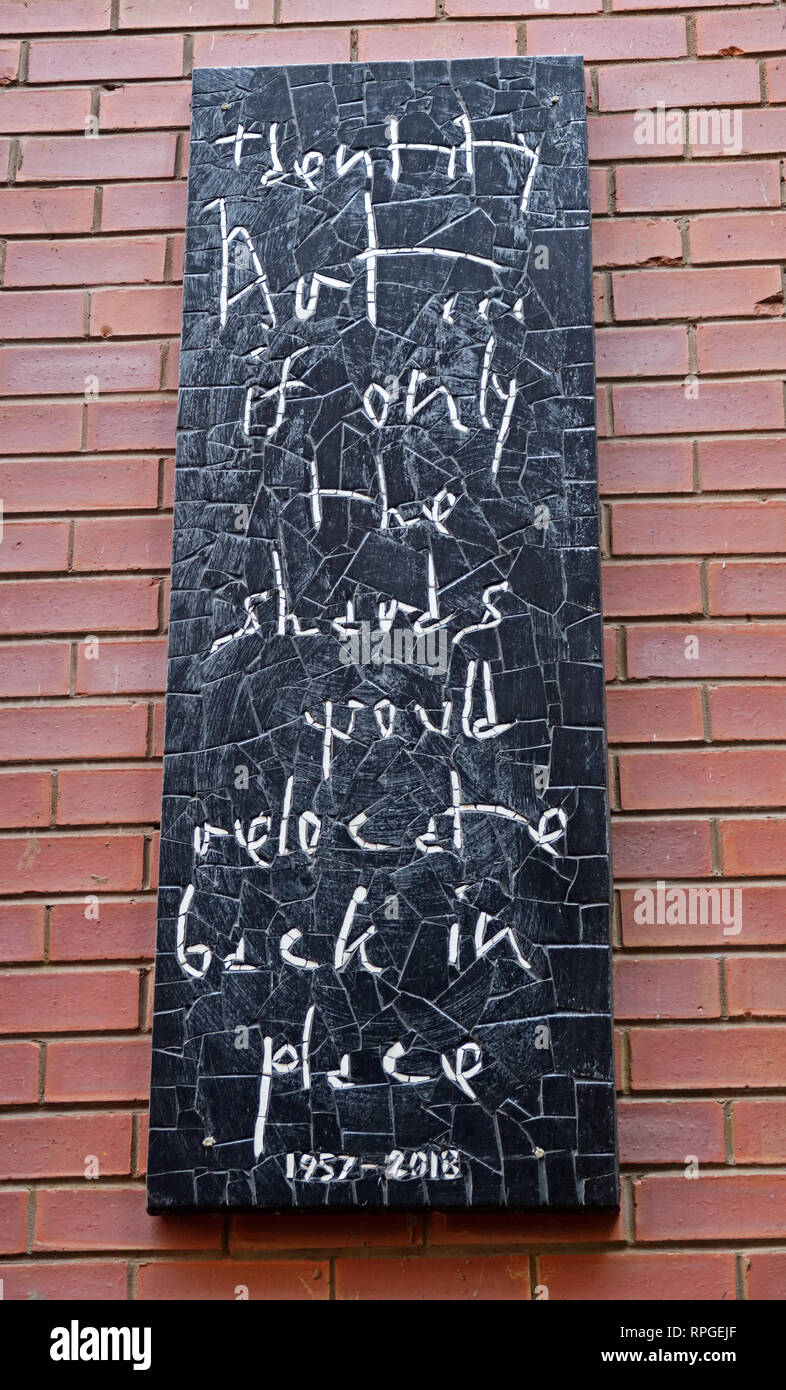 Identity
hut ...
if only
the
shards
would
relocate
back in
place
1957-2018
alamy
Image ID: RPGEJF
www.alamy.com